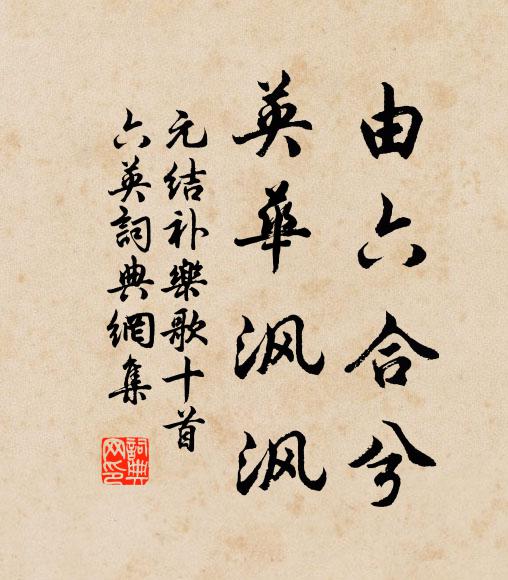 由六合兮
英華沨沨
元结补樂歌十首
六英詞典網集
詞典网印